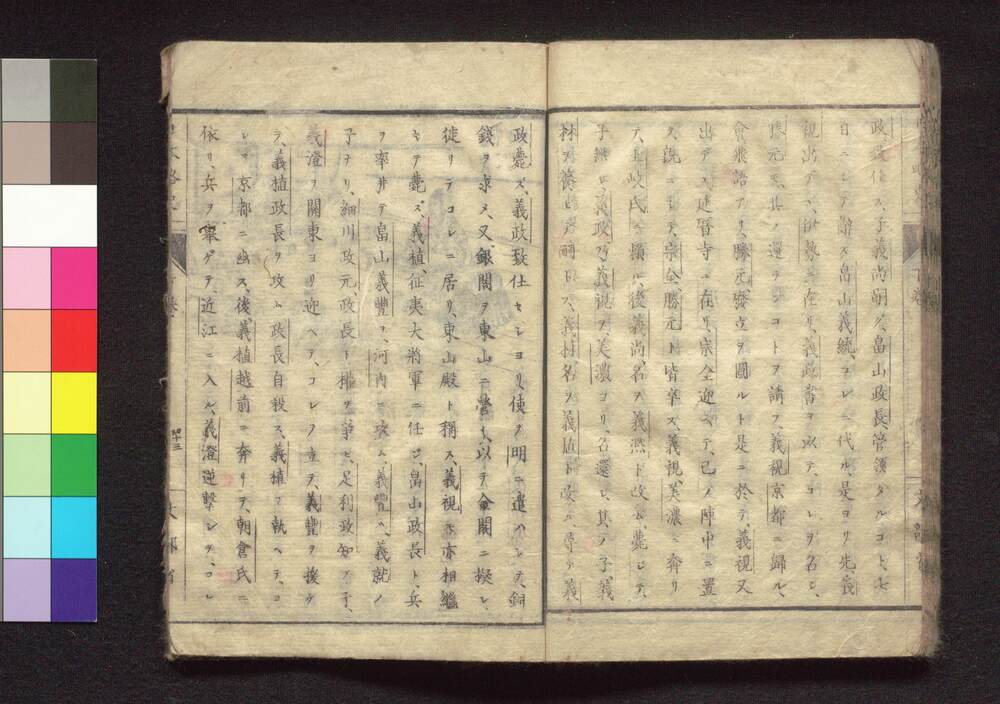 政致仕ス、子義尚嗣グ、畠山政長、管領タルコト、七
日ニシテ辭ス畠山義統、コレニ代ル、是ヨリ先、義
視出デヽ、伊勢ニ在リ、義政書ヲ以テ、コレヲ召シ、
勝元、其ノ還ランコトヲ請フ、義視京都ニ歸ル、
會飛語アリ、勝元廢立ヲ圖ルト是ニ於テ、義視又
出デヽ延曆寺ニ在リ、宗全迎ヘテ、己ノ陣中ニ置
ク、既ニシテ、宗全、勝元ト皆卒ス、義視、美濃ニ奔リ
テ、土岐氏ニ據ル、後義尚名ヲ義熙ト改ム、薨ジテ、
子無シ、義政乃義視ヲ美濃ヨリ、召還シ、其ノ子義
材ヲ養ヒテ嗣トス、義材名ヲ義植ト改ム、尋テ義
政薨ズ、義政致仕セシヨリ、使ヲ明ニ遣ハシテ、銅
錢ヲ求メ、又、銀閣ヲ東山ニ營ミ、以テ金閣ニ擬シ、
徒リテコレニ居リ、東山殿ト稱ス、義視モ亦相繼
ギテ薨ズ、義植、征夷大將軍ニ任ジ、畠山政長ト、兵
ヲ率井テ畠山義豐ヲ、河內ニ攻ム、義豐ハ、義就ノ
子ナリ、細川政元政長ト權ヲ爭ヒ、足利政知ノ子、
義澄ヲ關東ヨリ迎ヘテ、コレヲ立テ、義豐ヲ援ケ
テ、義植政長ヲ攻ム政長自殺ス、義植ヲ執ヘテ、コ
レヲ京都ニ幽ス、後義植越前ニ奔リテ、朝倉氏ニ
依リ兵ヲ擧ゲテ、近江ニ入ル、義澄逆擊シテ、コレ
四十三
文部省